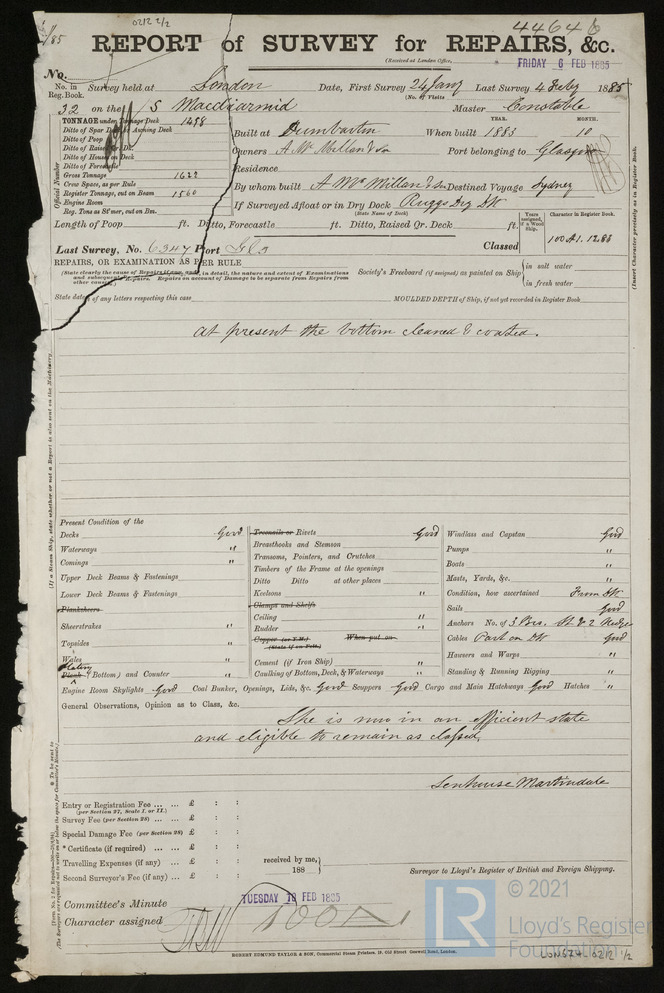 0212 2/2
44646
/85
REPORT of SURVEY for REPAIRS, &c.
(Received at London Office,
FRIDAY 6 FEB 1885
No.
No. in Reg. Book. Survey held at London Date, First Survey 24 Jany Last Survey 4 Feby 1885
(No. of Visits
32 on the S Macdiarmid Master Constable
TONNAGE under Tonnage Deck 1498
Ditto of Spar Deck or Awning Deck
Ditto of Poop
Ditto of Raised Qr. Dk.
Ditto of House on Deck
Ditto of Forecastle
Gross Tonnage 1622
Crew Space, as per Rule
Register Tonnage, cut on Beam 1560
Engine Room
Reg. Tons as St'mer, cut on Bm.
Official Number
YEAR. MONTH.
Built at Dumbarton When built 1883 10
Owners A McMillan & Son Port belonging to Glasgow
Residence
By whom built A McMillan & Son Destined Voyage Sydney
If Surveyed Afloat or in Dry Dock Ruggs Dry Dk
(State Name of Dock)
Length of Poop ft. Ditto, Forecastle ft. Ditto, Raised Qr. Deck ft.
Years assigned, if a Wood Ship.
Character in Register Book.
100 A1. 12.83
Last Survey, No. 6347 Port Gls Classed
REPAIRS, OR EXAMINATION AS PER RULE
(State clearly the cause of Repairs if any and, in detail, the nature and extent of Examinations and subsequent Repairs. Repairs on account of Damage to be separate from Repairs from other causes.)
Society's Freeboard (if assigned) as painted on Ship
in salt water
in fresh water
State date of any letters respecting this case
MOULDED DEPTH of Ship, if not yet recorded in Register Book
(Insert Character precisely as in Register Book.
at present the bottom cleaned & coated.
(If a Steam Ship, state whether or not a Report is also sent on the Machinery.
Present Condition of the
Decks Good
Waterways "
Comings "
Upper Deck Beams & Fastenings
Lower Deck Beams & Fastenings
Planksheers
Sheerstrakes "
Topsides "
Wales "
Plating
Plank (Bottom) and Counter "
Treenails or Rivets Good
Breasthooks and Stemson
Transoms, Pointers, and Crutches
Timbers of the Frame at the openings
Ditto Ditto at other places
Keelsons "
Clamps and Shelfs
Ceiling "
Rudder "
Copper (or Y.M.) When put on
(State if on Felt.)
Cement (if Iron Ship) "
Caulking of Bottom, Deck, & Waterways "
Windlass and Capstan Good
Pumps "
Boats "
Masts, Yards, &c. "
Condition, how ascertained From Dk
Sails Good
Anchors No. of 3 Brs. St & 2 Kedge
Cables Part on Dk Good
Hawsers and Warps "
Standing & Running Rigging "
Engine Room Skylights Good Coal Bunker, Openings, Lids, &c. Good Scuppers Good Cargo and Main Hatchways Good Hatches "
General Observations, Opinion as to Class, &c.
She is now in an efficient state
and eligible to remain as classed.
Senhouse Martindale
Entry or Registration Fee ... ... £ : :
(per Section 27, Scale I. or II.)
Survey Fee (per Section 28) ... £ : :
Special Damage Fee (per Section 28) £ : :
* Certificate (if required) ... ... £ : :
Travelling Expenses (if any) ... £ : :
Second Surveyor's Fee (if any) ... £ : :
received by me,
188
Surveyor to Lloyd's Register of British and Foreign Shipping.
TUESDAY 10 FEB 1885
Committee's Minute
Character assigned 100 A 1
ROBERT EDMUND TAYLOR & SON, Commercial Steam Printers, 19, Old Street Goswell Road, London.
LR
© 2021
Lloyd's Register
Foundation
LON574-0212 1/2